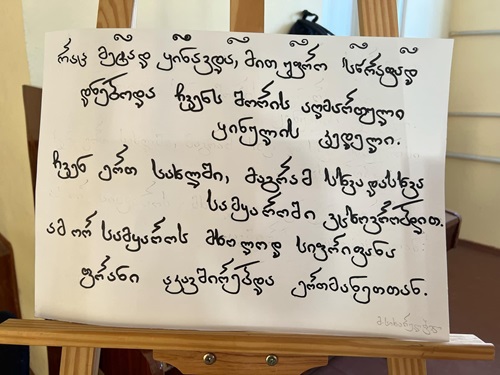 რაც მეტად ყინავდა, მით უფრო სწრაფად
დნებოდა ჩვენს შორის აღმართული
ყინულის კედელი.
ჩვენ ერთ სახლში, მაგრამ სხვადასხვა
სამყაროში ვცხოვრობდით.
ამ ორ სამყაროს მხოლოდ სიფრიფანა
ფრანი აკავშირებდა ერთმანეთთან.